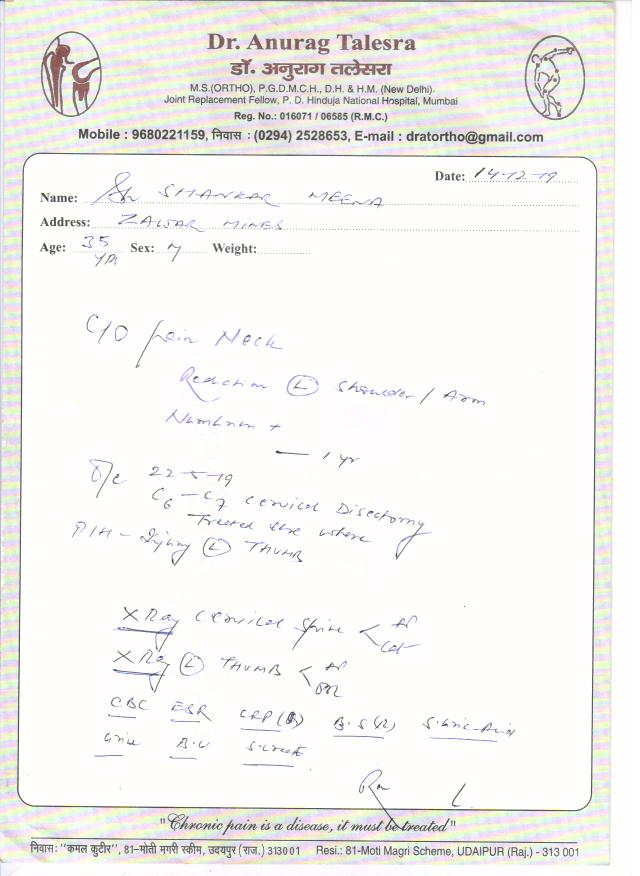 Dr. Anurag Talesra
डॉ. अनुराग तलेसरा
M.S.(ORTHO), P.G.D.M.C.H., D.H. & H.M. (New Delhi).
Joint Replacement Fellow, P. D. Hinduja National Hospital, Mumbai
Reg. No.: 016071 / 06585 (R.M.C.)
Mobile : 9680221159, निवास : (0294) 2528653, E-mail : dratortho@gmail.com
Date: 14-12-19
Name: SHANKAR MEENA
Address: ZAWAR MINES
Age: 35 YR Sex: M Weight:
C/O pain Neck
(L) Shoulder / Arm
Numbness +
— 1 yr
22-5-19
C6 – C7 Cervical Disectomy
Treated else where
P/H – Injury (L) THUMB
X Ray Cervical Spine < AP Lat
X Ray (L) THUMB < AP
CBC ESR CRP B.S(R) S.Uric-Acid
Urine B.U S.Creat
"Chronic pain is a disease, it must be treated"
निवास: "कमल कुटीर", 81–मोती मगरी स्कीम, उदयपुर (राज.) 313001 Resi.: 81-Moti Magri Scheme, UDAIPUR (Raj.) - 313 001